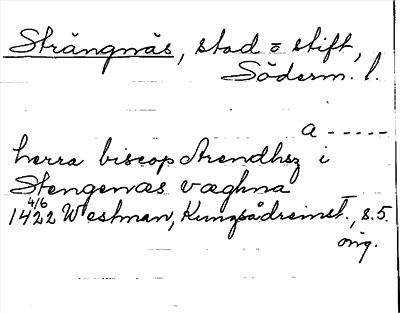 Strängnäs, stad o stift,
Söderm. l.
a - - - - -
herra biscop Arendhsz i
Stengenæs væghna
1422 4/6 Westman, Kungsådreinst., s. 5.
orig.